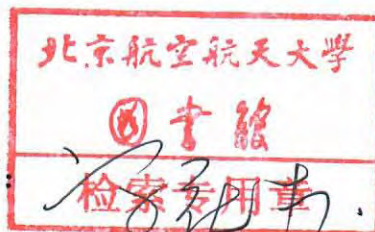 北京航空航天大學
图書館
检索专用章